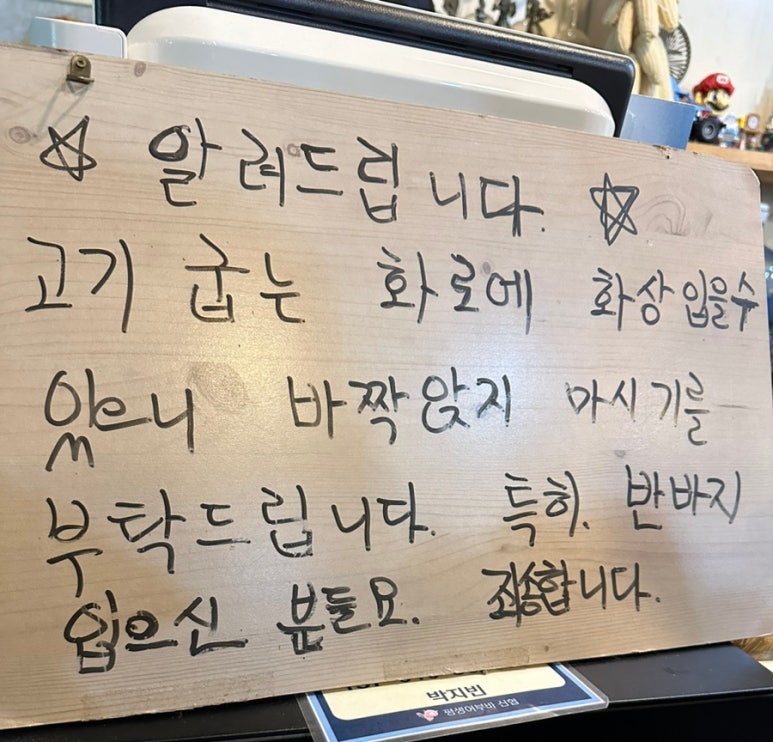 ☆ 알려드립니다. ☆
고기 굽는 화로에 화상 입을수
있으니 바짝 앉지 마시기를
부탁드립니다. 특히. 반바지
입으신 분들요. 죄송합니다.
박지빈
평생어부바 신협